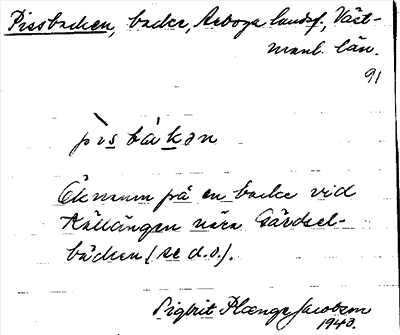 Pissbacken, backe, Arboga landsf., Väst-
manl. län.
91
pìs bákan
Öknamn på en backe vid
Källängen nära Gärdsel-
bäcken (se d.o.).
Sigbrit Plænge Jacobson
1943.